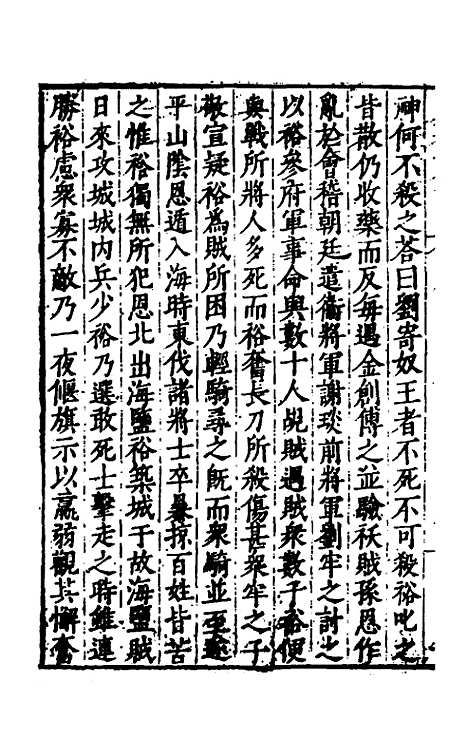 神何不殺之荅曰劉寄奴王者不死不可殺裕叱之
皆散仍收藥而反每遇金創傅之並驗袄賊孫恩作
亂於會稽朝廷遣衞將軍謝琰前將軍劉牢之討之
以裕參府軍事命與數十人覘賊遇賊衆數千裕便
與戰所將人多死而裕奮長刀所殺傷甚衆牢之子
敬宣疑裕爲賊所困乃輕騎尋之旣而衆騎並至遂
平山隂恩遁入海時東伐諸將士卒暴掠百姓皆苦
之惟裕獨無所犯恩北出海鹽裕築城于故海鹽賊
日來攻城城内兵少裕乃選敢死士擊走之時雖連
勝裕慮衆寡不敵乃一夜偃旗示以羸弱觀其懈奮